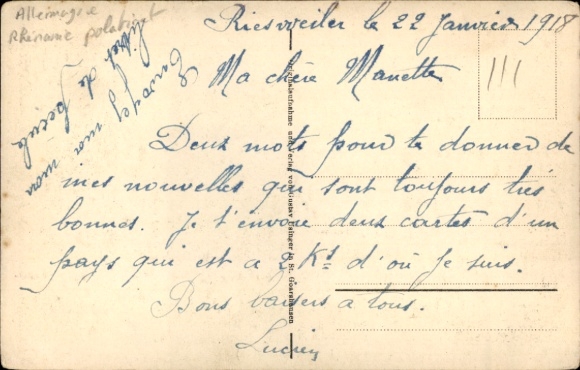 Allemagne
Rhénanie palatinat
Riesweiler le 22 Janvier 1918
Ma chère Manette
Deux mots pour te donner de
mes nouvelles qui sont toujours très
bonnes. Je t'envoie deux cartes d'un
pays qui est a 2 Ks d'où je suis.
Bons baisers a tous.
Lucien
Envoyez moi mon
livret de
Originalaufnahme und Verlag von Gustav Isinger in St. Goarshausen
111